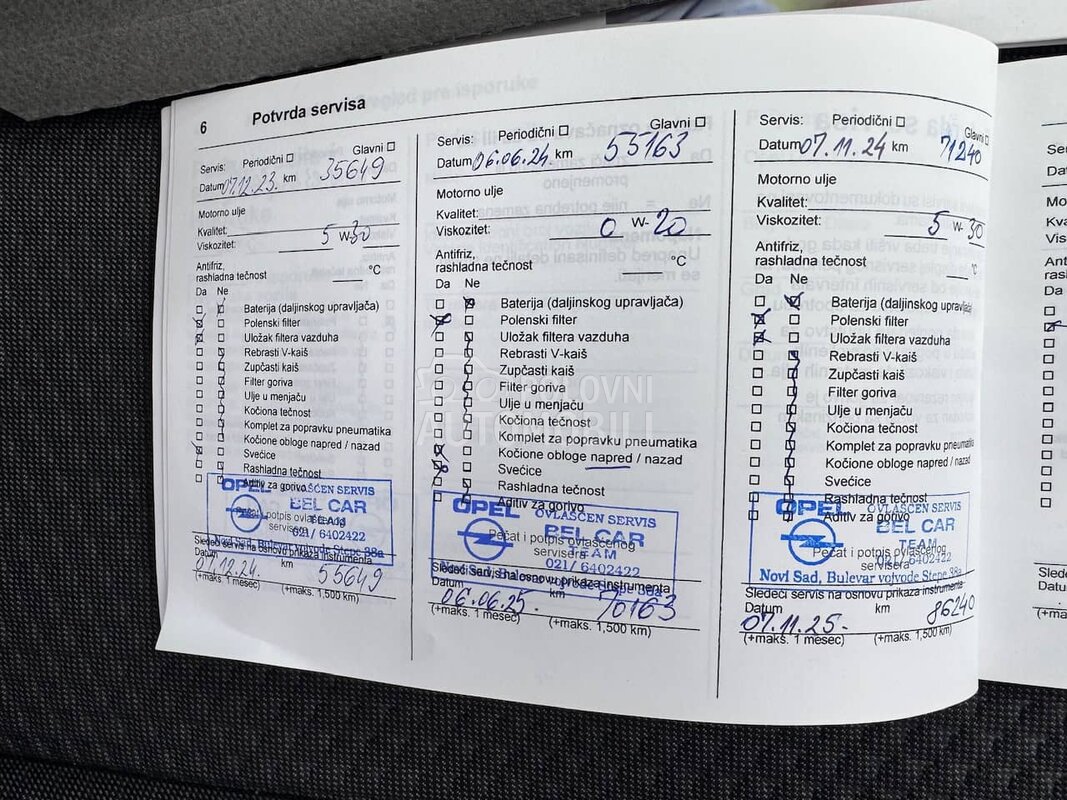 6
Potvrda servisa
Servis: Periodični Glavni
Datum 07.12.23. km 35649
Motorno ulje
Kvalitet:
Viskozitet: 5 W-30
Antifriz,
rashladna tečnost °C
Da Ne
Baterija (daljinskog upravljača)
Polenski filter
Uložak filtera vazduha
Rebrasti V-kaiš
Zupčasti kaiš
Filter goriva
Ulje u menjaču
Kočiona tečnost
Komplet za popravku pneumatika
Kočione obloge napred / nazad
Svećice
Rashladna tečnost
Aditiv za gorivo
OPEL OVLAŠĆEN SERVIS
BEL CAR
TEAM
021/ 6402422
Novi Sad, Bulevar vojvode Stepe 38a
Pečat i potpis ovlašćenog
servisera
Sledeći servis na osnovu prikaza instrumenta
Datum km
07.12.24. 55649
(+maks. 1 mesec) (+maks. 1,500 km)
Servis: Periodični Glavni
Datum 06.06.24 km 55163
Motorno ulje
Kvalitet:
Viskozitet: 0 W-20
Antifriz,
rashladna tečnost °C
Da Ne
Baterija (daljinskog upravljača)
Polenski filter
Uložak filtera vazduha
Rebrasti V-kaiš
Zupčasti kaiš
Filter goriva
Ulje u menjaču
Kočiona tečnost
Komplet za popravku pneumatika
Kočione obloge napred / nazad
Svećice
Rashladna tečnost
Aditiv za gorivo
OPEL OVLAŠĆEN SERVIS
BEL CAR
TEAM
021/ 6402422
Novi Sad, Bulevar vojvode Stepe 38a
Pečat i potpis ovlašćenog
servisera
Sledeći servis na osnovu prikaza instrumenta
Datum km
06.06.25. 70163
(+maks. 1 mesec) (+maks. 1,500 km)
Servis: Periodični Glavni
Datum 07.11.24 km 71240
Motorno ulje
Kvalitet:
Viskozitet: 5 W-30
Antifriz,
rashladna tečnost °C
Da Ne
Baterija (daljinskog upravljača)
Polenski filter
Uložak filtera vazduha
Rebrasti V-kaiš
Zupčasti kaiš
Filter goriva
Ulje u menjaču
Kočiona tečnost
Komplet za popravku pneumatika
Kočione obloge napred / nazad
Svećice
Rashladna tečnost
Aditiv za gorivo
OPEL OVLAŠĆEN SERVIS
BEL CAR
TEAM
021/ 6402422
Novi Sad, Bulevar vojvode Stepe 38a
Pečat i potpis ovlašćenog
servisera
Sledeći servis na osnovu prikaza instrumenta
Datum km
07.11.25.- 86240
(+maks. 1 mesec) (+maks. 1,500 km)
POLOVNI
AUTOMOBILI